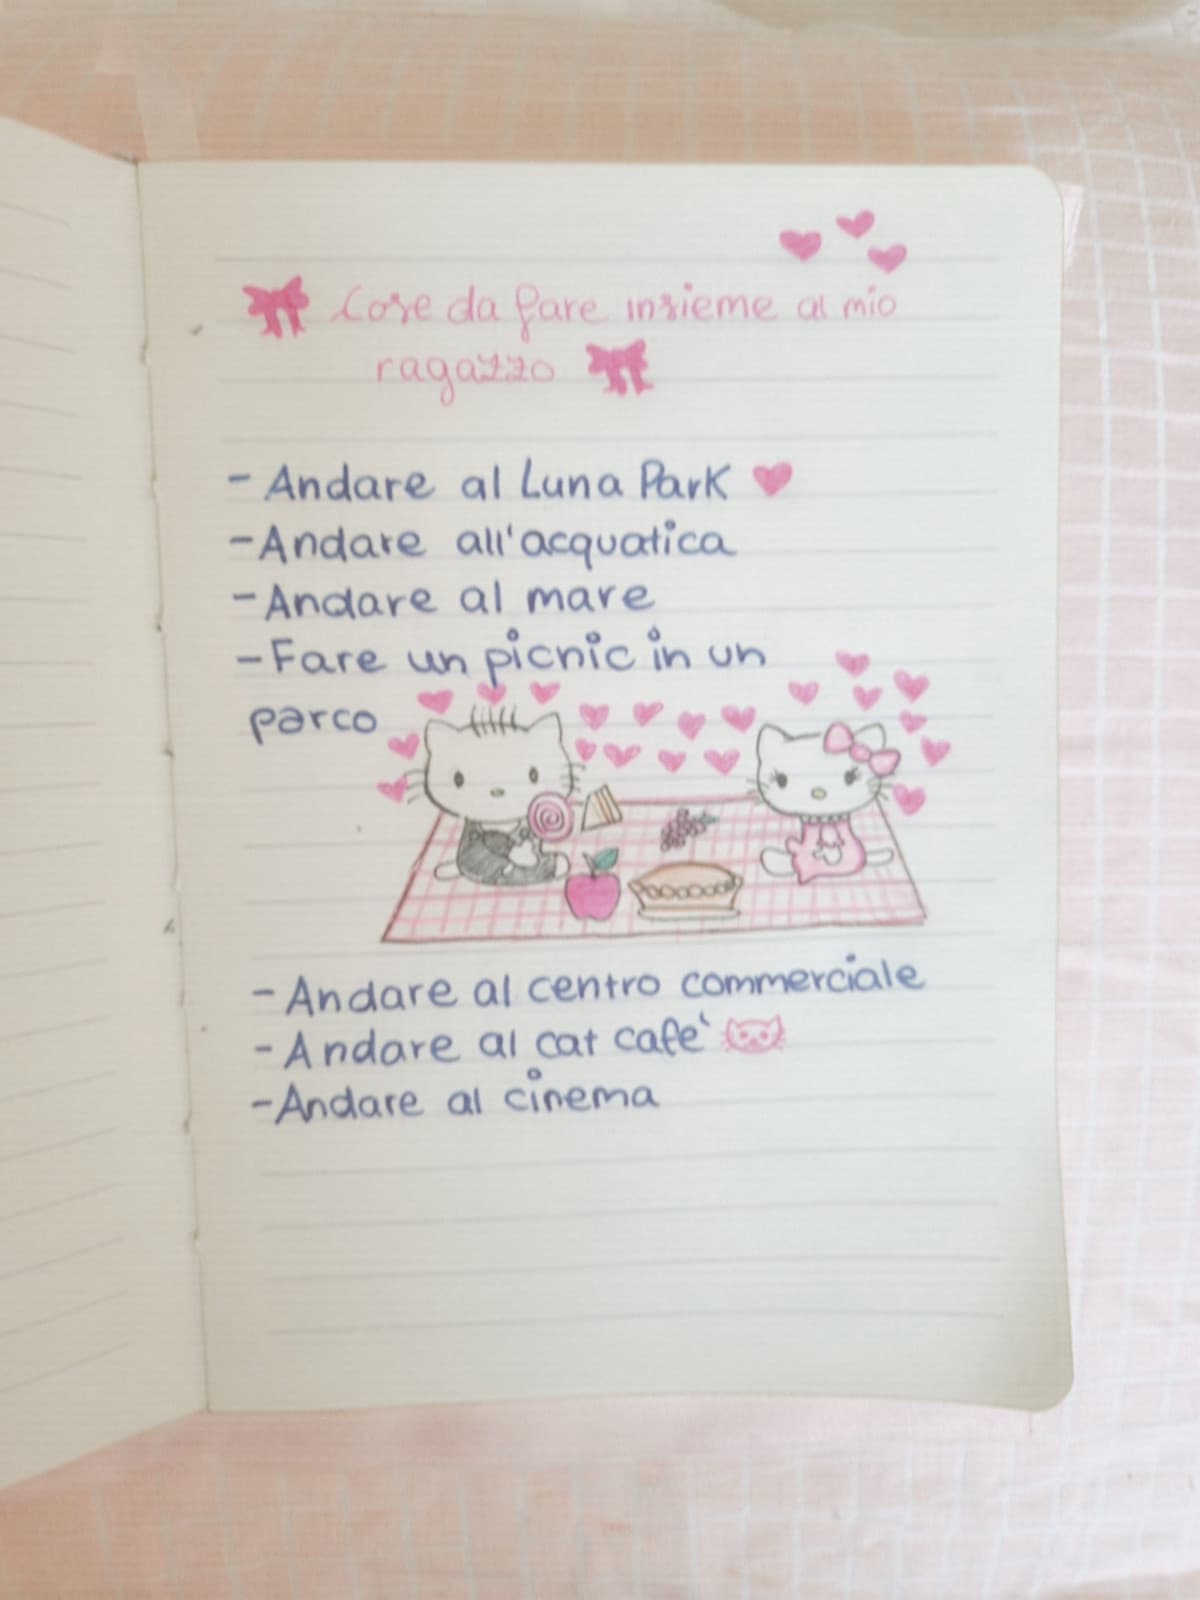 Cose da fare insieme al mio
ragazzo
- Andare al Luna Park
- Andare all'acquatica
- Andare al mare
- Fare un picnic in un
parco
- Andare al centro commerciale
- Andare al cat cafe`
- Andare al cinema